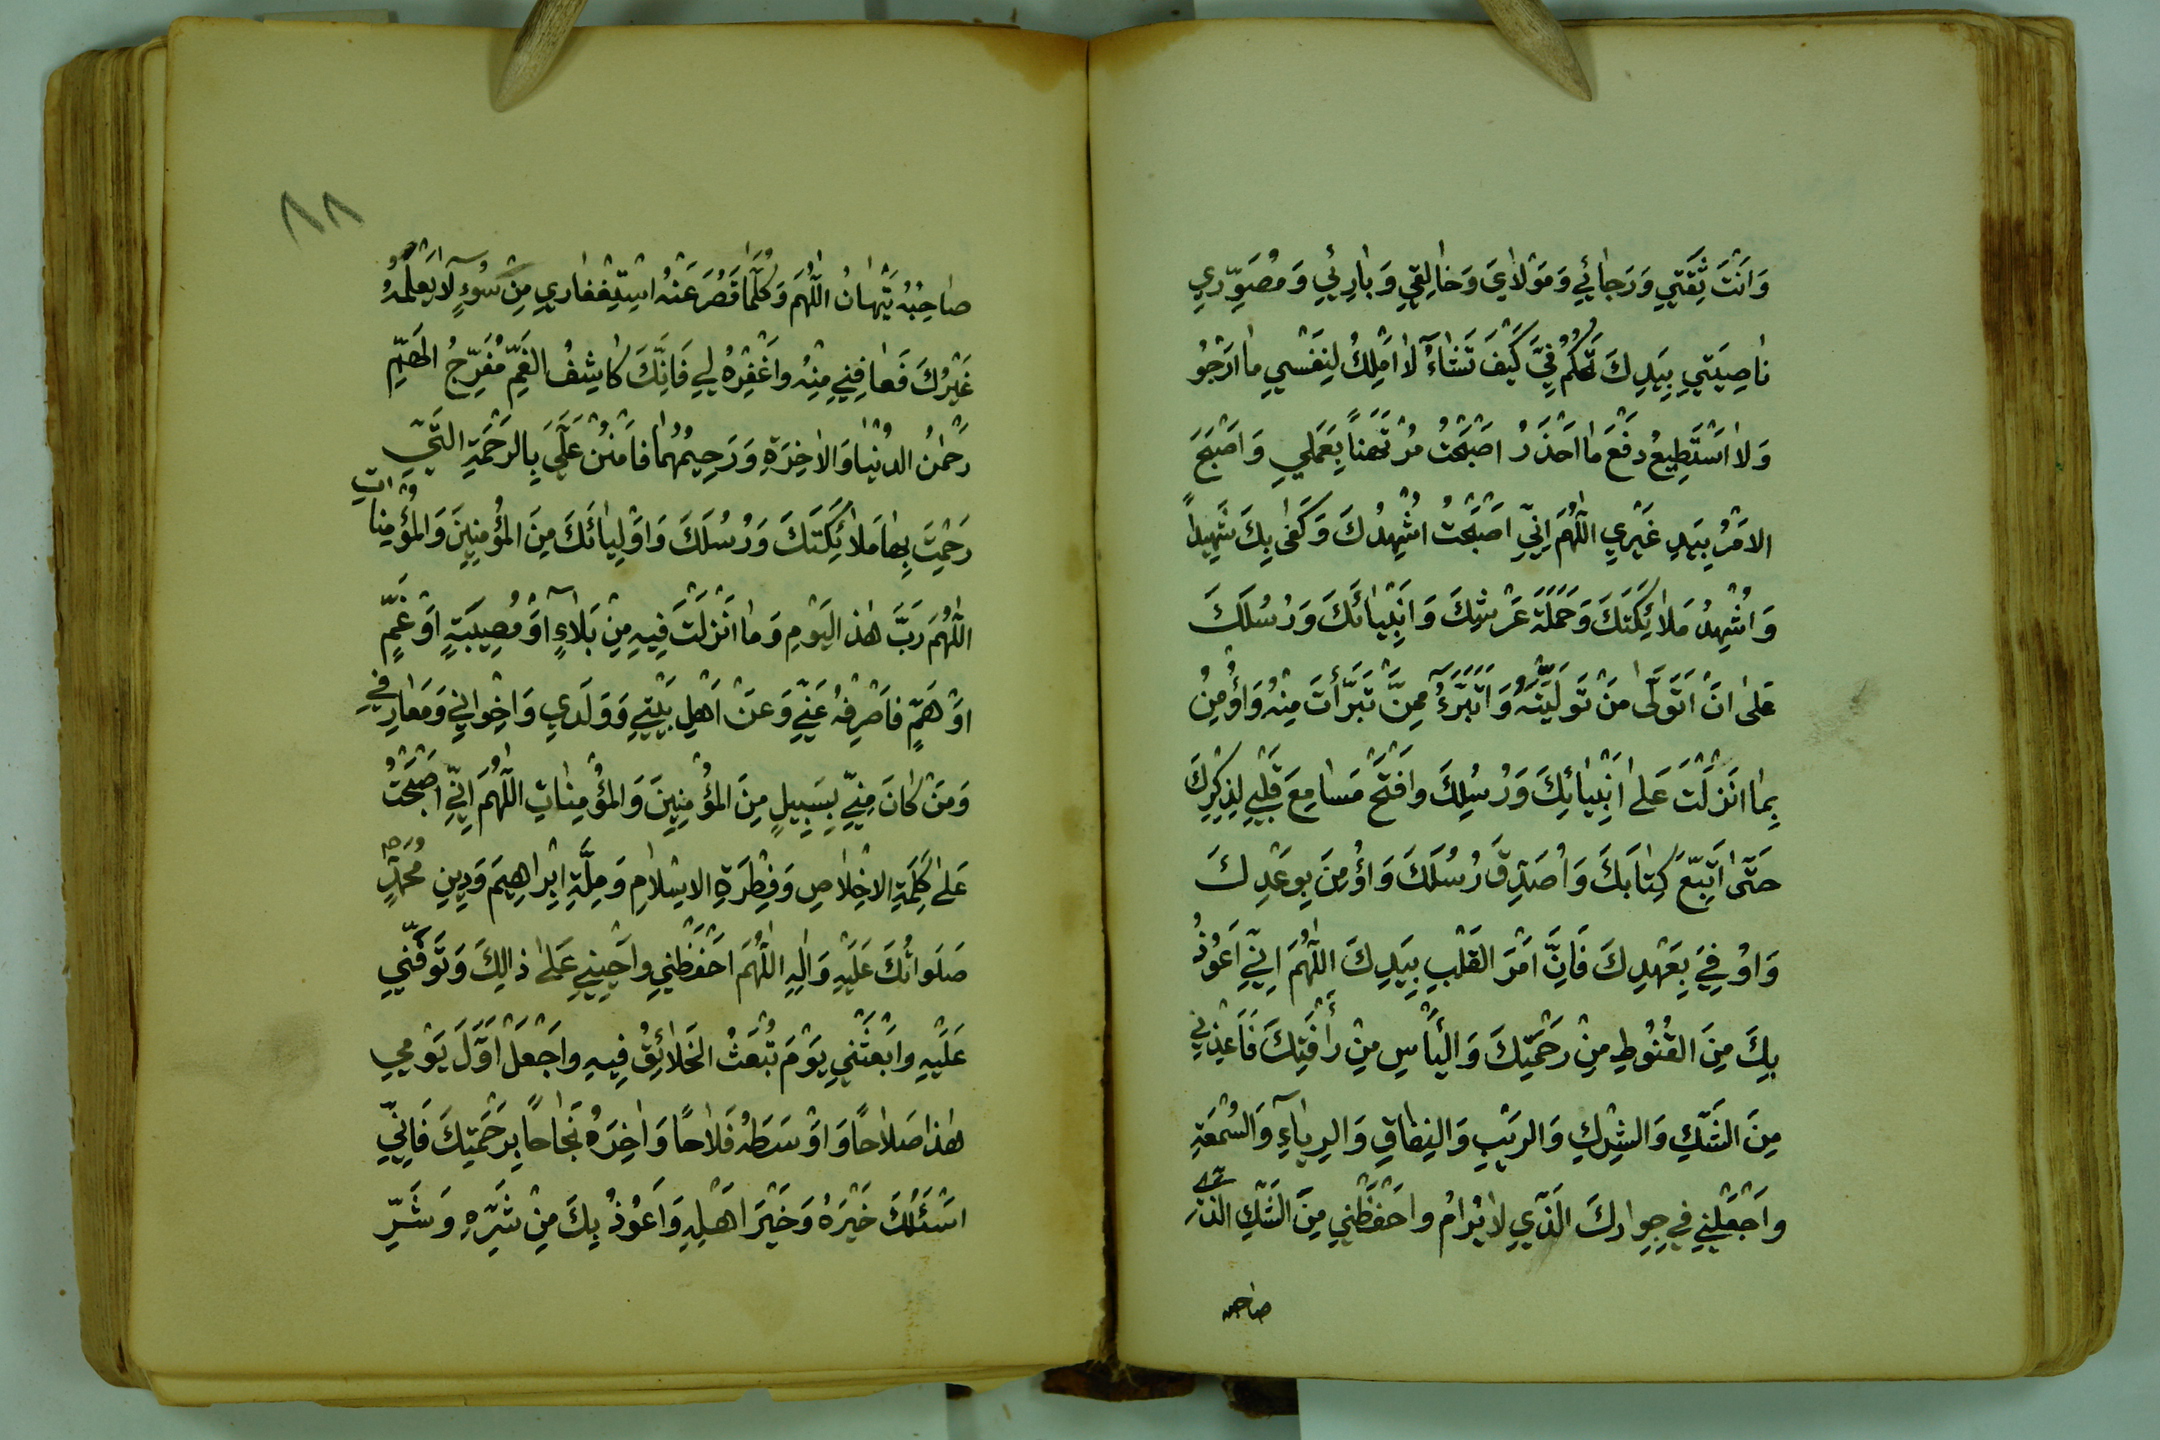 وَاَنْتَ ثِقَتِي وَرَجٰائِي وَمَوْلٰايَ وَخٰالِقِي وَبٰارِئِي وَمُصَوِّرِي
نٰاصِيَتِي بِيَدِكَ تَحْكُمُ فِيَّ كَيْفَ تَشٰاءُ لٰا اَمْلِكُ لِنَفْسِي مٰا اَرْجُو
وَلٰا اَسْتَطِيعُ دَفْعَ مٰا اَحْذَرُ اَصْبَحْتُ مُرْتَهَناً بِعَمَلِي وَاَصْبَحَ
الاَمْرُ بِيَدِ غَيْرِي اللّٰهُمَّ اِنِّي اَصْبَحْتُ اُشْهِدُكَ وَكَفٰى بِكَ شَهِيداً
وَاُشْهِدُ مَلٰائِكَتَكَ وَحَمَلَةَ عَرْشِكَ وَاَنْبِيٰائَكَ وَرُسُلَكَ
عَلٰى اَنْ اَتَوَلّٰى مَنْ تَوَلَّيْتَهُ وَاَتَبَرَّءُ مِمَّنْ تَبَرَّأْتَ مِنْهُ وَاُؤْمِنُ
بِمٰا اَنْزَلْتَ عَلٰى اَنْبِيٰائِكَ وَرُسُلِكَ وافْتَحْ مَسٰامِعَ قَلْبِي لِذِكْرِكَ
حَتّٰى اَتَّبِعَ كِتٰابَكَ وَاُصَدِّقَ رُسُلَكَ وَاُؤْمِنَ بِوَعْدِكَ
وَاُوْفِيَ بِعَهْدِكَ فَاِنَّ اَمْرَ القَلْبِ بِيَدِكَ اللّٰهُمَّ اِنِّي اَعُوْذُ
بِكَ مِنَ القُنُوْطِ مِنْ رَحْمَتِكَ وَاليَأْسِ مِنْ رَأْفَتِكَ فَاَعِذْنِي
مِنَ الشَّكِّ وَالشِّرْكِ وَالرَيْبِ وَالنِفٰاقِ وَالرِيٰآءِ وَالسُمْعَةِ
واجْعَلْنِي فِي جِوٰارِكَ الَّذِي لٰا يُرٰامُ واحْفَظْنِي مِنَ الشَّكِّ الَّذِي
صٰاحبه
٨٨
صٰاحِبُهُ يُهٰانُ اللّٰهُمَّ وَكُلَّمٰا قَصُرَ عَنْهُ اسْتِغْفٰارِي مِنْ سُوْءٍ لٰا يَعْلَمُهُ
غَيْرُكَ فَعٰافِنِي مِنْهُ واغْفِرْهُ لِي فَاِنَّكَ كٰاشِفُ الغَمِّ مُفَرِّجُ الهَمِّ
رَحْمٰنُ الدُنْيٰا وَالاٰخِرَةِ وَرَحِيمُهُمٰا فامْنُنْ عَلَيَّ بِالرَحْمَةِ الَّتِي
رَحِمْتَ بِهٰا مَلٰائِكَتَكَ وَرُسُلَكَ وَاَوْلِيٰائَكَ مِنَ المُؤْمِنِينَ وَالمُؤْمِنٰاتِ
اللّٰهُمَّ رَبَّ هٰذا اليَوْمِ وَمٰا اَنْزَلْتَ فِيهِ مِنْ بَلٰآءٍ اَوْ مُصِيبَةٍ اَوْ غَمٍّ
اَوْ هَمٍّ فاصْرِفْهُ عَنِّي وَعَنْ اَهْلِ بَيْتِي وَوَلَدِي وَاِخْوٰانِي وَمَعٰارِفِي
وَمَنْ كٰانَ مِنِّي بِسَبِيلٍ مِنَ المُؤْمِنِينَ وَالمُؤْمِنٰاتِ اللّٰهُمَّ اِنِّي اَصْبَحْتُ
عَلٰى كَلِمَةِ الاِخْلٰاصِ وَفِطْرَةِ الاِسْلٰامِ وَمِلَّةِ اِبْرٰاهِيمَ وَدِينِ مُحَمَّدٍ
صَلَوٰاتُكَ عَلَيْهِ وَاٰلِهِ اللّٰهُمَّ احْفَظْنِي واَحْيِنِي عَلٰى ذٰالِكَ وَتَوَفَّنِي
عَلَيْهِ وابْعَثْنِي يَوْمَ تُبْعَثُ الخَلٰائِقُ فِيهِ واجْعَلْ اَوَّلَ يَوْمِي
هٰذا صَلٰاحًا وَاَوْسَطَهُ فَلٰاحًا وَاٰخِرَهُ نَجٰاحًا بِرَحْمَتِكَ فَاِنِّي
اَسْئَلُكَ خَيْرَهُ وَخَيْرَ اَهْلِهِ وَاَعُوْذُ بِكَ مِنْ شَرِّهِ وَشَرِّ